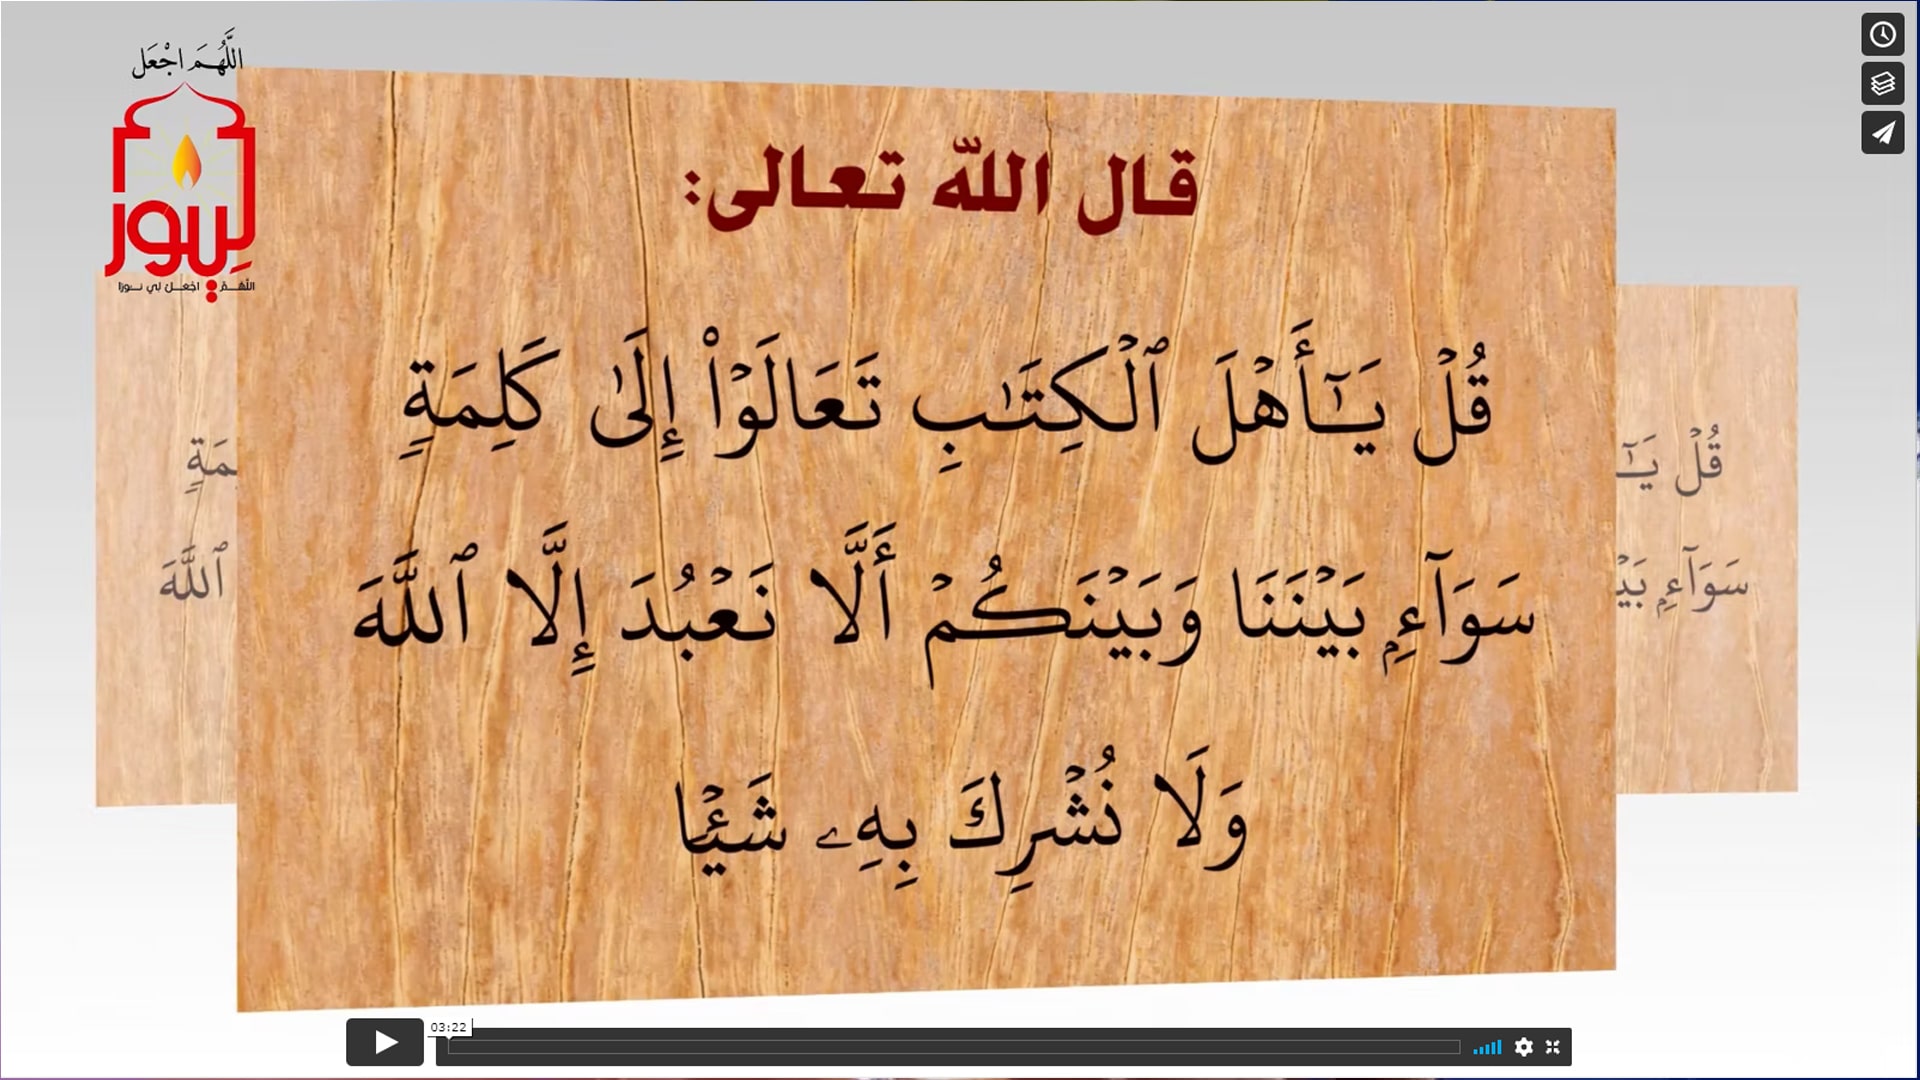 اللَّهُمَّ اجْعَل
لِي نور
اللهم اجعل لي نورا
قال الله تعالى:
قُلۡ يَـٰٓأَهۡلَ ٱلۡكِتَـٰبِ تَعَالَوۡا۟ إِلَىٰ كَلِمَةٍ
سَوَآءِۭ بَيۡنَنَا وَبَيۡنَكُمۡ أَلَّا نَعۡبُدَ إِلَّا ٱللَّهَ
وَلَا نُشۡرِكَ بِهِۦ شَيۡـًٔا
قُلۡ يَـٰٓ
مَةٍ
سَوَآءِۭ بَيۡ
ٱللَّهَ
03:22